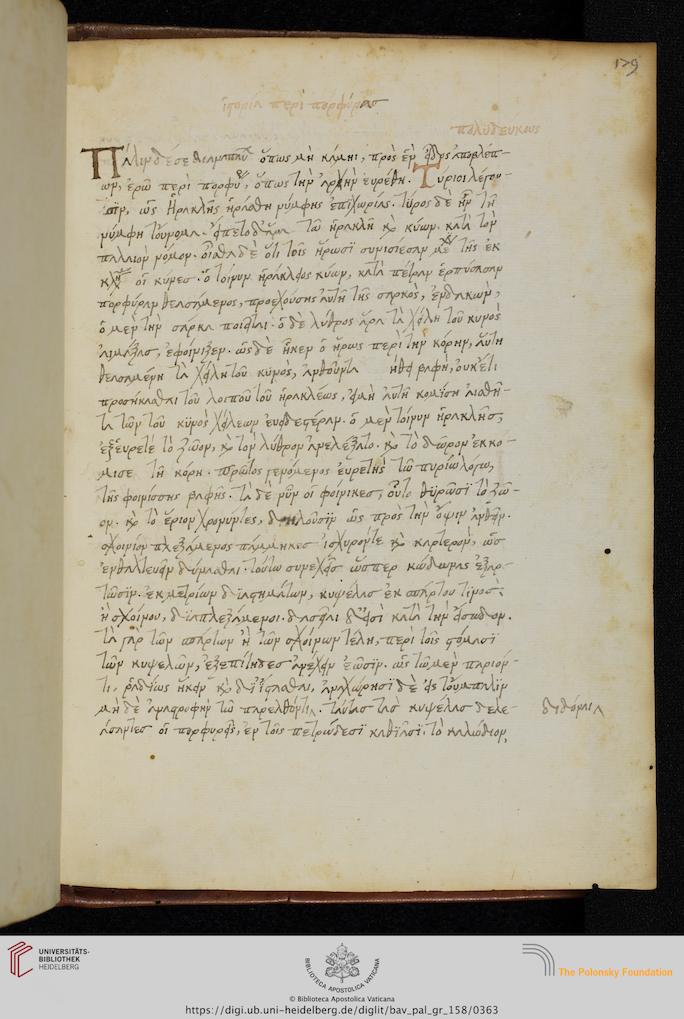 ἱστορία περὶ πορφύρας
129
πολυδεύκους
Πάλιν δέ σε θεραπεύων ὅπως μὴ κάμηι, πρὸς ἓν εἶδος ἀποβλέπ-
ων, ἐρῶ περὶ πορφύρας, ὅπως τὴν ἀρχὴν εὑρέθη. Τύριοι λέγου-
σιν, ὡς Ἡρακλῆς ἠράσθη νύμφης ἐπιχωρίας. τύρος δὲ ἦν τῆ
νύμφη τοὔνομα. εἵπετο δ' ἄρα τῶ ἡρακλεῖ καὶ κύων. κατὰ τὸν
παλαιὸν νόμον. οἶσθα δὲ ὅτι τοῖς ἥρωσϊ συνισίεσαν μέχρι τῆς ἐκ
κλησίας οἱ κύνεσ. ὁ τοίνυν ἡράκλειος κύων, κατὰ πέτραν ἑρπύσασαν
πορφύραν θεασάμενος, προεχούσης αὐτῆ τῆς σαρκός, ἐνδακών,
ὁ μὲν τὴν σάρκα ποιεῖται. ὁ δὲ λύθρος ἄρα τὰ χείλη τοῦ κυνὸς
αἱμάξας, ἐφοίνιξεν. ὡς δὲ ἧκεν ὁ ἥρως περὶ τὴν κόρην, αὕτη
θεασαμένη τὰ χείλη τοῦ κυνὸς, ἀνθοῦντα ἤθει βαφῆ, οὐκέτι
προσήκασθαι τοῦ λοιποῦ τοῦ ἡρακλέως, εἰ μὴ αὐτῆ κομίση αἰσθῆ-
τα τῶν τοῦ κϋνὸς χείλεων εὐειδεστέραν. ὁ μὲν τοίνυν ἡρακλῆς,
ἐξεῦρετε τὸ ζῶον, καὶ τὸν λύθρον ἀνελέξατο. καὶ τὸ δῶρον ἐκκο-
μισε τῆ κόρη. πρῶτος γενόμενος εὑρετὴς τῶ τυρίω λόγω,
τῆς φοινίσσης βαφῆς. τὰ δὲ νῦν οἱ φοίνικεσ, οὕτω θηρῶσϊ τὸ ζῶ-
ον. καὶ τὸ ἔριον χρωννύντες, δηλοῦσϊν ὡς πρὸς τὴν ὄψιν ἀνθεῖν.
σχοινίον πλεξάμενος πάμμηκεσ ἰσχυρόν τε καὶ καρτερὸν, ὡς
ἐνθαλτεύειν δύνασθαι. τούτω συνεχεῖς ὥσπερ κώδωνας ἐξαρ-
τῶσϊν. ἐκ μετρίων διαστημάτων, κυψέλας ἐκ σπάρτου τϊνοσ,
ἢ σχοίνου, διαπλεξάμενοι. δασεῖαι δ' εἰσὶ κατὰ τὴν εἴσοδον.
τὰ γὰρ τῶν σπάρτων ἢ τῶν σχοίνων τέλη, περι τοῖς στόμασϊ
τῶν κυψελῶν, ἐξεπίτηδες ἀνέχειν ἐῶσϊν. ὡς τῶ μὲν παριόν-
τι, ῥαδίως ἥκειν καὶ διΐστασθαι, ἀναχώρησϊ δὲ εἰς τοὔμπαλϊν
μὴ δὲ ἀναστροφὴν τῶ παρελθόντι. ταύτασ τὰσ κυψέλασ δελε- δϋσθόρασι
άσαντες οἱ πορφυρεῖς, ἐν τοῖς πετρώδεσϊ καθϊᾶσϊ. τὸ καλώδιον
UNIVERSITÄTS-
BIBLIOTHEK
HEIDELBERG
BIBLIOTHECA APOSTOLICA VATICANA
The Polonsky Foundation
© Biblioteca Apostolica Vaticana
https://digi.ub.uni-heidelberg.de/diglit/bav_pal_gr_158/0363